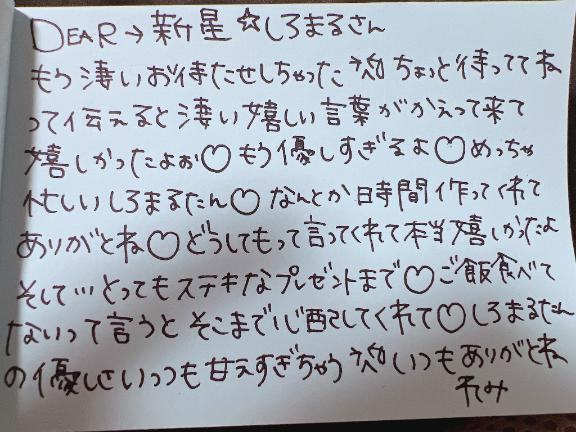 DEAR→新星☆しろまるさん
もう凄いお待たせしちゃった ちょっと待っててね
って伝えると凄い嬉しい言葉がかえって来て
嬉しかったよぉ♡もう優しすぎるよ♡めっちゃ
忙しいしろまるたん♡なんとか時間作ってくれて
ありがとね♡どうしてもって言ってくれて本当嬉しかったよ
そして…とってもステキなプレゼントまで♡ご飯食べて
ないって言うとそこまで心配してくれて♡しろまるたん
の優しさいっつも甘えすぎちゃう いつもありがとね
れみ